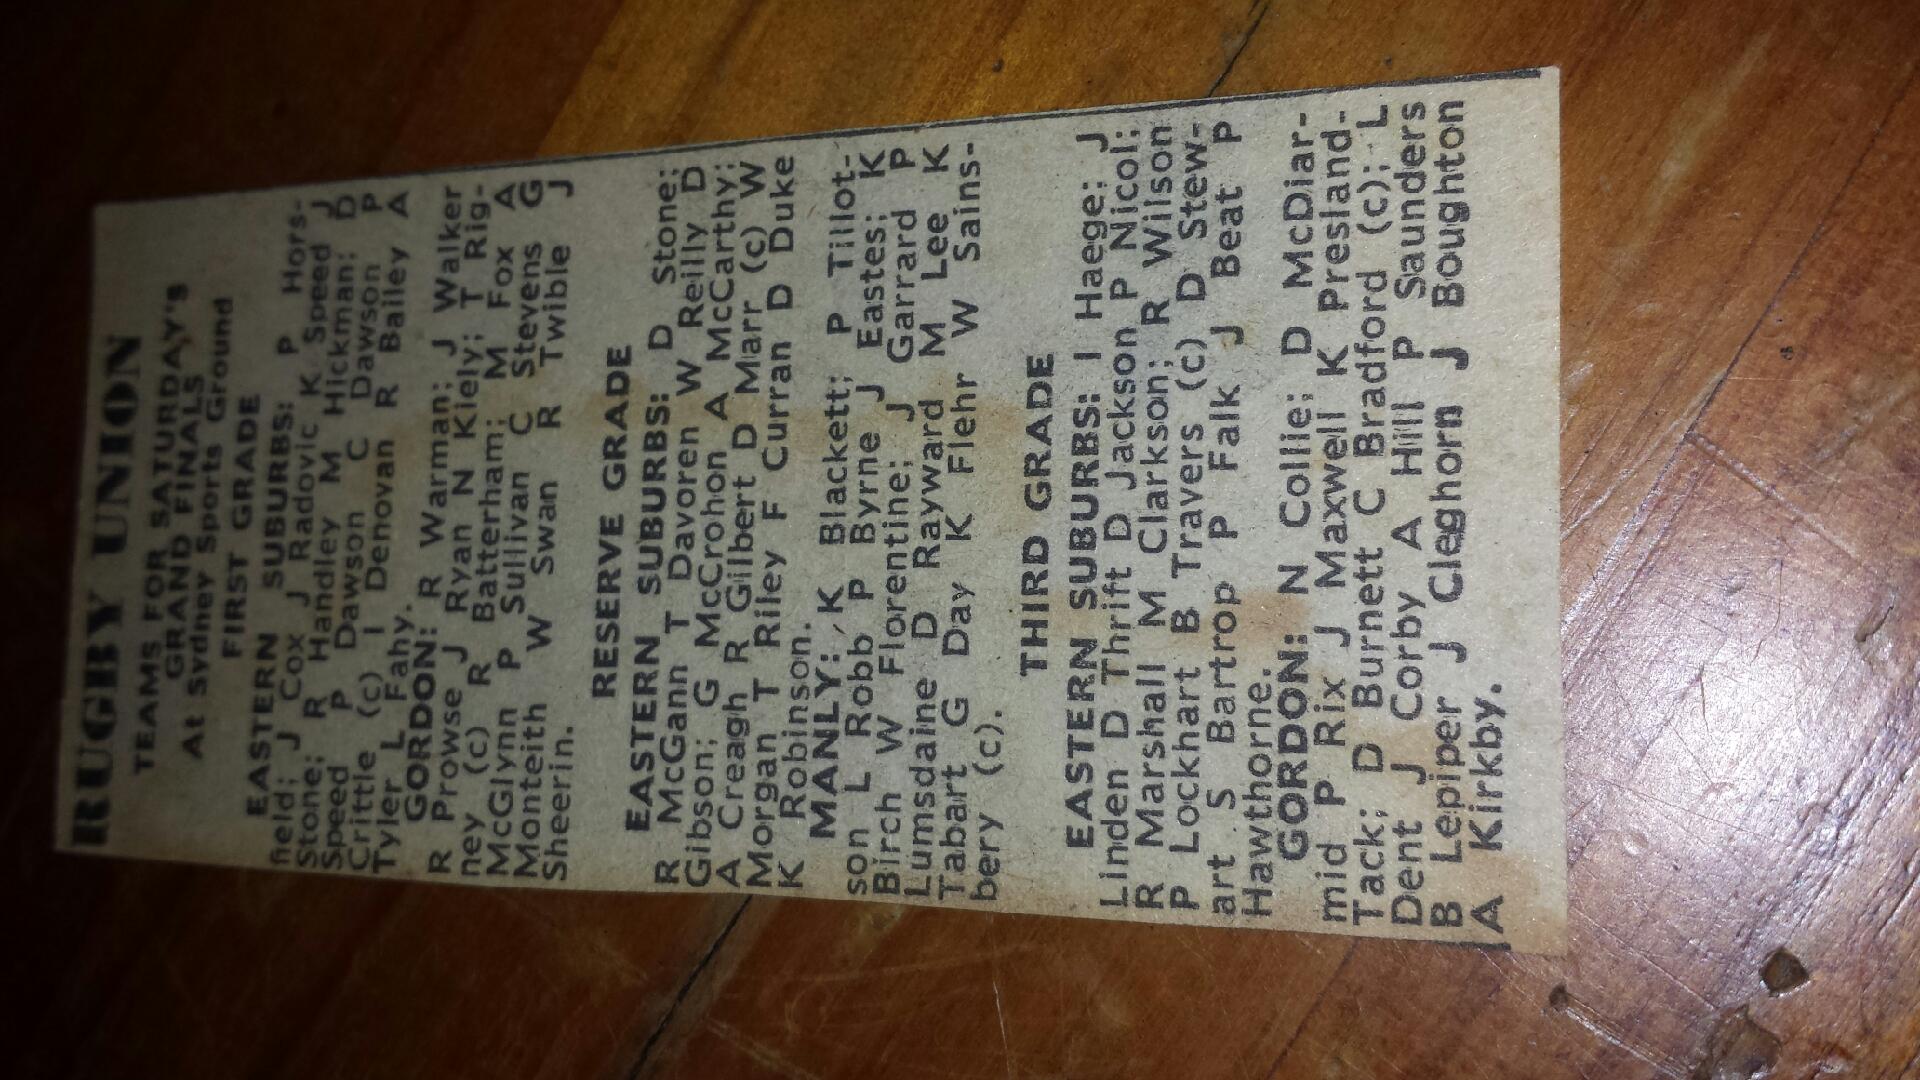 RUGBY UNION
TEAMS FOR SATURDAY'S
GRAND FINALS
At Sydney Sports Ground
FIRST GRADE
EASTERN SUBURBS: P Hors-
field; J Cox J Radovic K Speed J
Stone; R Handley M Hickman: D
Speed P Dawson C Dawson P
Crittle (c) I Denovan R Bailey A
Tyler L Fahy.
GORDON: R Warman; J Walker
R Prowse J Ryan N Kiely; T Rig-
ney (c) R Batterham; M Fox A
McGlynn P Sullivan C Stevens G
Monteith W Swan R Twible J
Sheerin.
RESERVE GRADE
EASTERN SUBURBS: D Stone;
R McGann T Davoren W Reilly D
Gibson; G McCrohon A McCarthy;
A Creagh R Gilbert D Marr (c) W
Morgan T Riley F Curran D Duke
K Robinson.
MANLY: K Blackett; P Tillot-
son L Robb P Byrne J Eastes; K
Birch W Florentine; J Garrard P
Lumsdaine D Rayward M Lee K
Tabart G Day K Flehr W Sains-
bery (c).
THIRD GRADE
EASTERN SUBURBS: I Haege; J
Linden D Thrift D Jackson P Nicol;
R Marshall M Clarkson; R Wilson
P Lockhart B Travers (c) D Stew-
art S Bartrop P Falk J Beat P
Hawthorne.
GORDON: N Collie; D McDiar-
mid P Rix J Maxwell K Presland-
Tack; D Burnett C Bradford (c); L
Dent J Corby A Hill P Saunders
B Lepiper J Cleghorn J Boughton
A Kirkby.